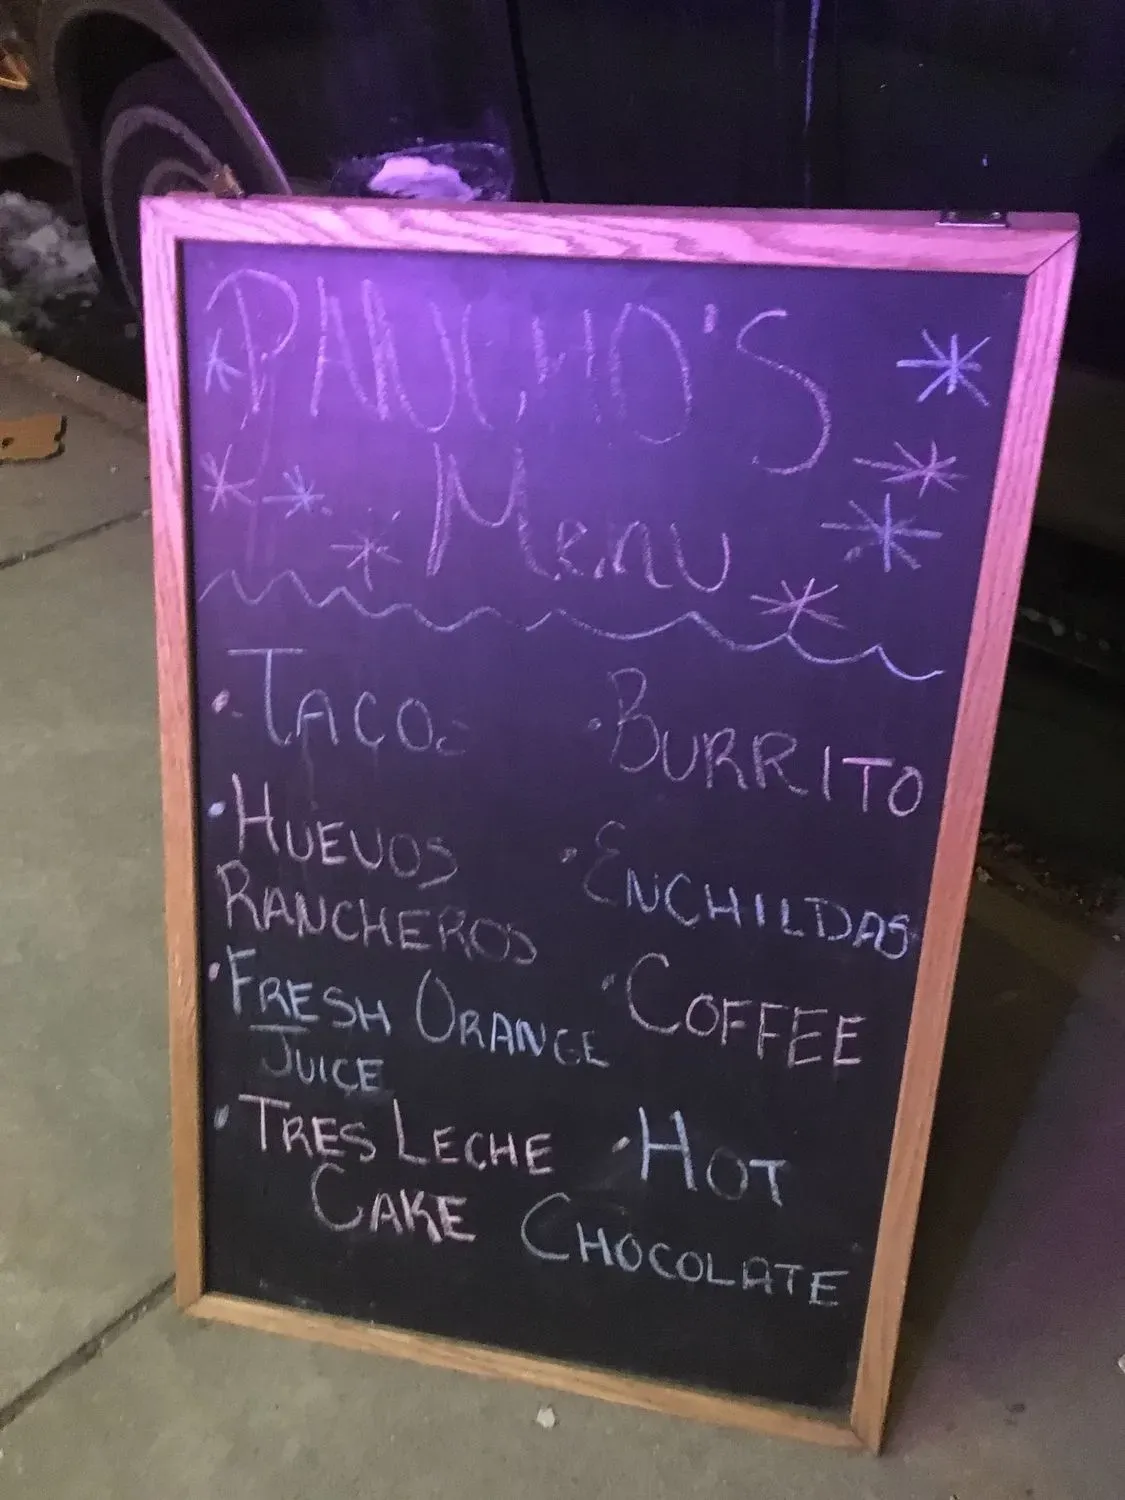 PANCHO'S
Menu
• TACOS
• BURRITO
• HUEVOS
RANCHEROS
• ENCHILDAS
• FRESH ORANGE
JUICE
• COFFEE
• TRES LECHE
CAKE
• HOT
CHOCOLATE